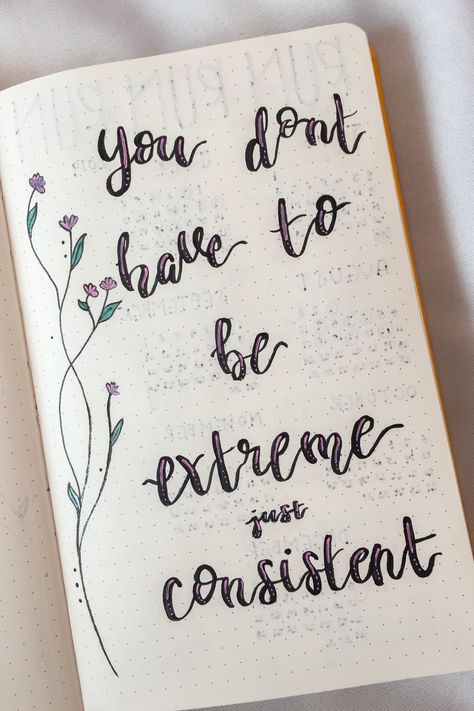 you dont
have to
be
extreme
just
consistent